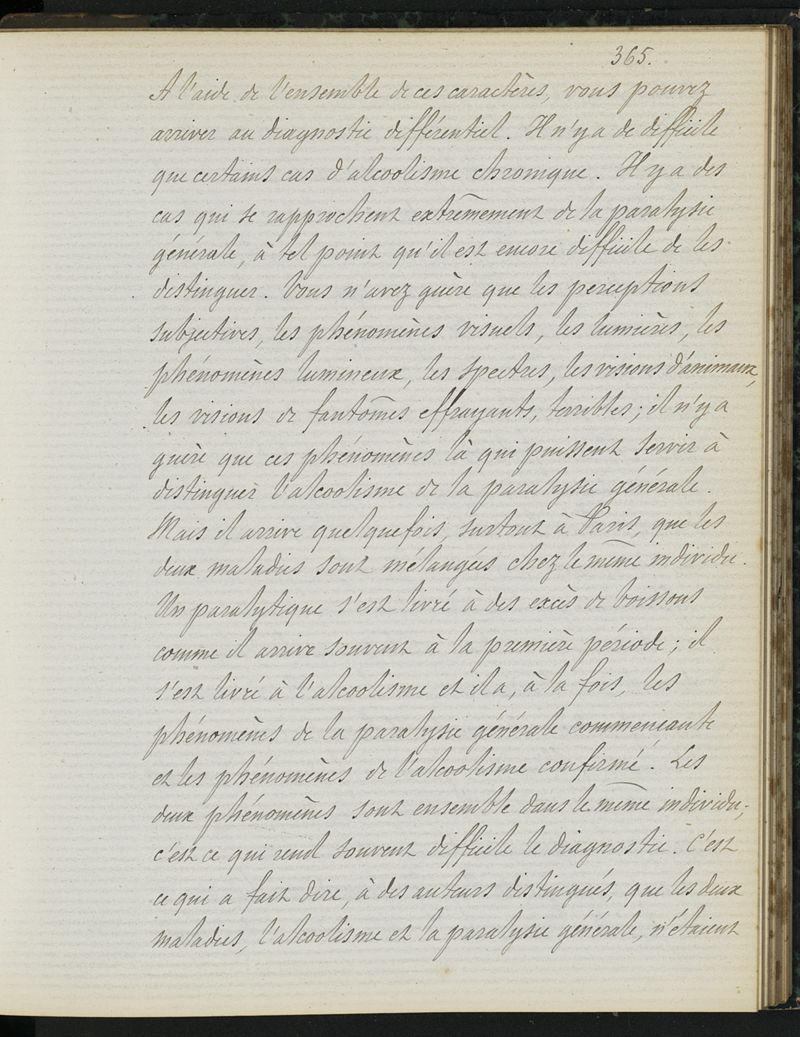 365.
A l'aide de l'ensemble de ces caractères, vous pouvez
arriver au diagnostic différentiel. Il n'y a de difficile
que certains cas d'alcoolisme chronique. Il y a des
cas qui se rapprochent extrêmement de la paralysie
générale, à tel point qu'il est encore difficile de les
distinguer. Vous n'avez guère que les perceptions
subjectives, les phénomènes visuels, les lumières, les
phénomènes lumineux, les spectres, les visions d'animaux,
les visions de fantômes effrayants, terribles; il n'y a
guère que ces phénomènes là qui puissent servir à
distinguer l'alcoolisme de la paralysie générale.
Mais il arrive quelquefois, surtout à Paris, que les
deux maladies sont mélangées chez le même individu.
Un paralytique s'est livré à des excès de boissons
comme il arrive souvent à la première période; il
s'est livré à l'alcoolisme et il a, à la fois, les
phénomènes de la paralysie générale commençante
et les phénomènes de l'alcoolisme confirmé. Les
deux phénomènes sont ensemble dans le même individu;
c'est ce qui rend souvent difficile le diagnostic. C'est
ce qui a fait dire, à des auteurs distingués, que les deux
maladies, l'alcoolisme et la paralysie générale, n'étaient